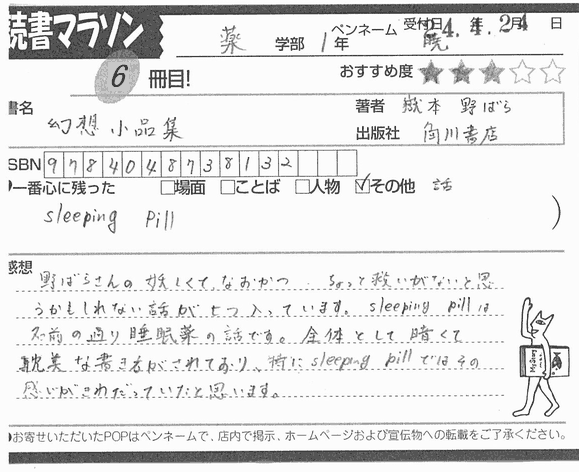 読書マラソン
薬 学部 1年 ペンネーム 暁 受付日 24.年4.月24日
6 冊目! おすすめ度 ★★★☆☆
書名 幻想小品集
著者 嶽本 野ばら
出版社 角川書店
ISBN 9784048738132
一番心に残った □場面 □ことば □人物 ☑その他 話
sleeping Pill )
感想
野ばらさんの 妖しくて なおかつ ちょっと救いがないと思
うかもしれない 話が 七つ 入っています。 sleeping pillは
名前の通り 睡眠薬の話です。 全体として 暗くて
耽美な書き方がされており、特に sleeping pill ではその
感じがきわだっていたと思います。
お寄せいただいたPOPはペンネームで、店内で掲示、ホームページおよび宣伝物への転載をご了承ください。